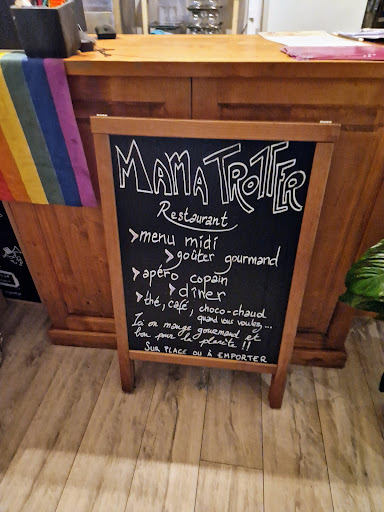 MAMA TROTTER
Restaurant
> menu midi
> goûter gourmand
> apéro copain
> dîner
> thé, café, choco-chaud
quand vous voulez...
Ici on mange gourmand et
bon pour la planète !!
SUR PLACE OU À EMPORTER